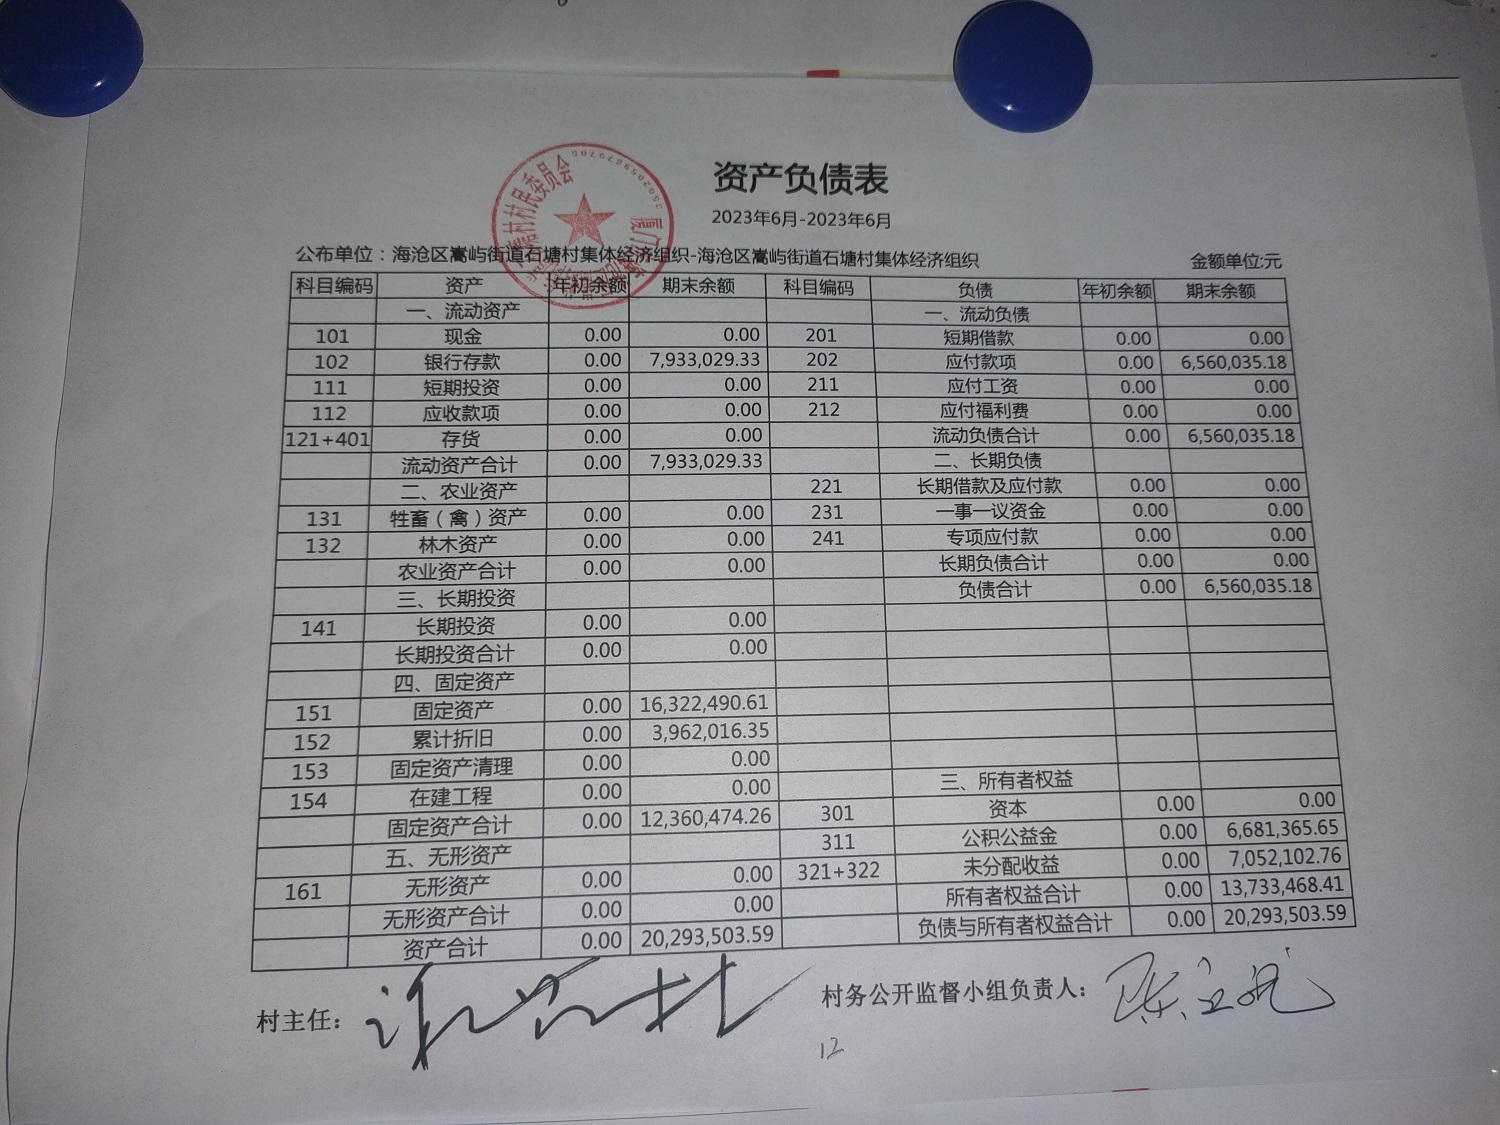 资产负债表
2023年6月-2023年6月
公布单位：海沧区嵩屿街道石塘村集体经济组织-海沧区嵩屿街道石塘村集体经济组织 金额单位:元
科目编码 资产 年初余额 期末余额 科目编码 负债 年初余额 期末余额
一、流动资产 一、流动负债
101 现金 0.00 0.00 201 短期借款 0.00 0.00
102 银行存款 0.00 7,933,029.33 202 应付款项 0.00 6,560,035.18
111 短期投资 0.00 0.00 211 应付工资 0.00 0.00
112 应收款项 0.00 0.00 212 应付福利费 0.00 0.00
121+401 存货 0.00 0.00 流动负债合计 0.00 6,560,035.18
流动资产合计 0.00 7,933,029.33 二、长期负债
二、农业资产 221 长期借款及应付款 0.00 0.00
131 牲畜（禽）资产 0.00 0.00 231 一事一议资金 0.00 0.00
132 林木资产 0.00 0.00 241 专项应付款 0.00 0.00
农业资产合计 0.00 0.00 长期负债合计 0.00 0.00
三、长期投资 负债合计 0.00 6,560,035.18
141 长期投资 0.00 0.00
长期投资合计 0.00 0.00
四、固定资产
151 固定资产 0.00 16,322,490.61
152 累计折旧 0.00 3,962,016.35
153 固定资产清理 0.00 0.00
154 在建工程 0.00 0.00 三、所有者权益
固定资产合计 0.00 12,360,474.26 301 资本 0.00 0.00
五、无形资产 311 公积公益金 0.00 6,681,365.65
161 无形资产 0.00 0.00 321+322 未分配收益 0.00 7,052,102.76
无形资产合计 0.00 0.00 所有者权益合计 0.00 13,733,468.41
资产合计 0.00 20,293,503.59 负债与所有者权益合计 0.00 20,293,503.59
村主任： 村务公开监督小组负责人：
12